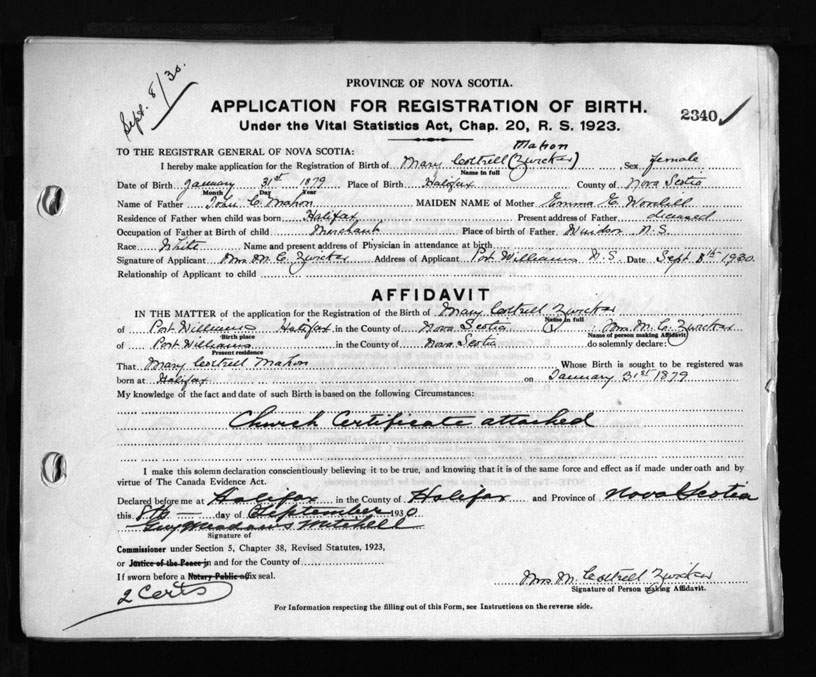 Sept. 8/30.
PROVINCE OF NOVA SCOTIA.
APPLICATION FOR REGISTRATION OF BIRTH.
2340
Under the Vital Statistics Act, Chap. 20, R. S. 1923.
TO THE REGISTRAR GENERAL OF NOVA SCOTIA:
Mahon
I hereby make application for the Registration of Birth of Mary Cottrell (Zwicker) Sex female
Name in full
Date of Birth January 31st 1879 Place of Birth Halifax County of Nova Scotia
Month Day Year
Name of Father John C. Mahon MAIDEN NAME of Mother Emma E. Worrall
Residence of Father when child was born Halifax Present address of Father deceased
Occupation of Father at Birth of child Merchant Place of birth of Father Windsor N.S.
Race White Name and present address of Physician in attendance at birth
Signature of Applicant Mrs. M. C. Zwicker Address of Applicant Port Williams N.S. Date Sept. 8th 1930.
Relationship of Applicant to child
AFFIDAVIT
IN THE MATTER of the application for the Registration of the Birth of Mary Cottrell Zwicker
Name in full
of Port Williams Halifax in the County of Nova Scotia : Mrs M. C. Zwicker
Birth place Name of person making Affidavit
of Port Williams in the County of Nova Scotia do solemnly declare:
Present residence
That Mary Cottrell Mahon Whose Birth is sought to be registered was
born at Halifax on January 31st 1879
My knowledge of the fact and date of such Birth is based on the following Circumstances:
Church Certificate attached
I make this solemn declaration conscientiously believing it to be true, and knowing that it is of the same force and effect as if made under oath and by
virtue of The Canada Evidence Act.
Declared before me at Halifax in the County of Halifax and Province of Nova Scotia
this 8th day of September 1930
Guy Meadows Mitchell
Signature of
Commissioner under Section 5, Chapter 38, Revised Statutes, 1923,
or Justice of the Peace in and for the County of
If sworn before a Notary Public affix seal.
Mrs M. Cottrell Zwicker
2 Certs
Signature of Person making Affidavit.
For Information respecting the filling out of this Form, see Instructions on the reverse side.